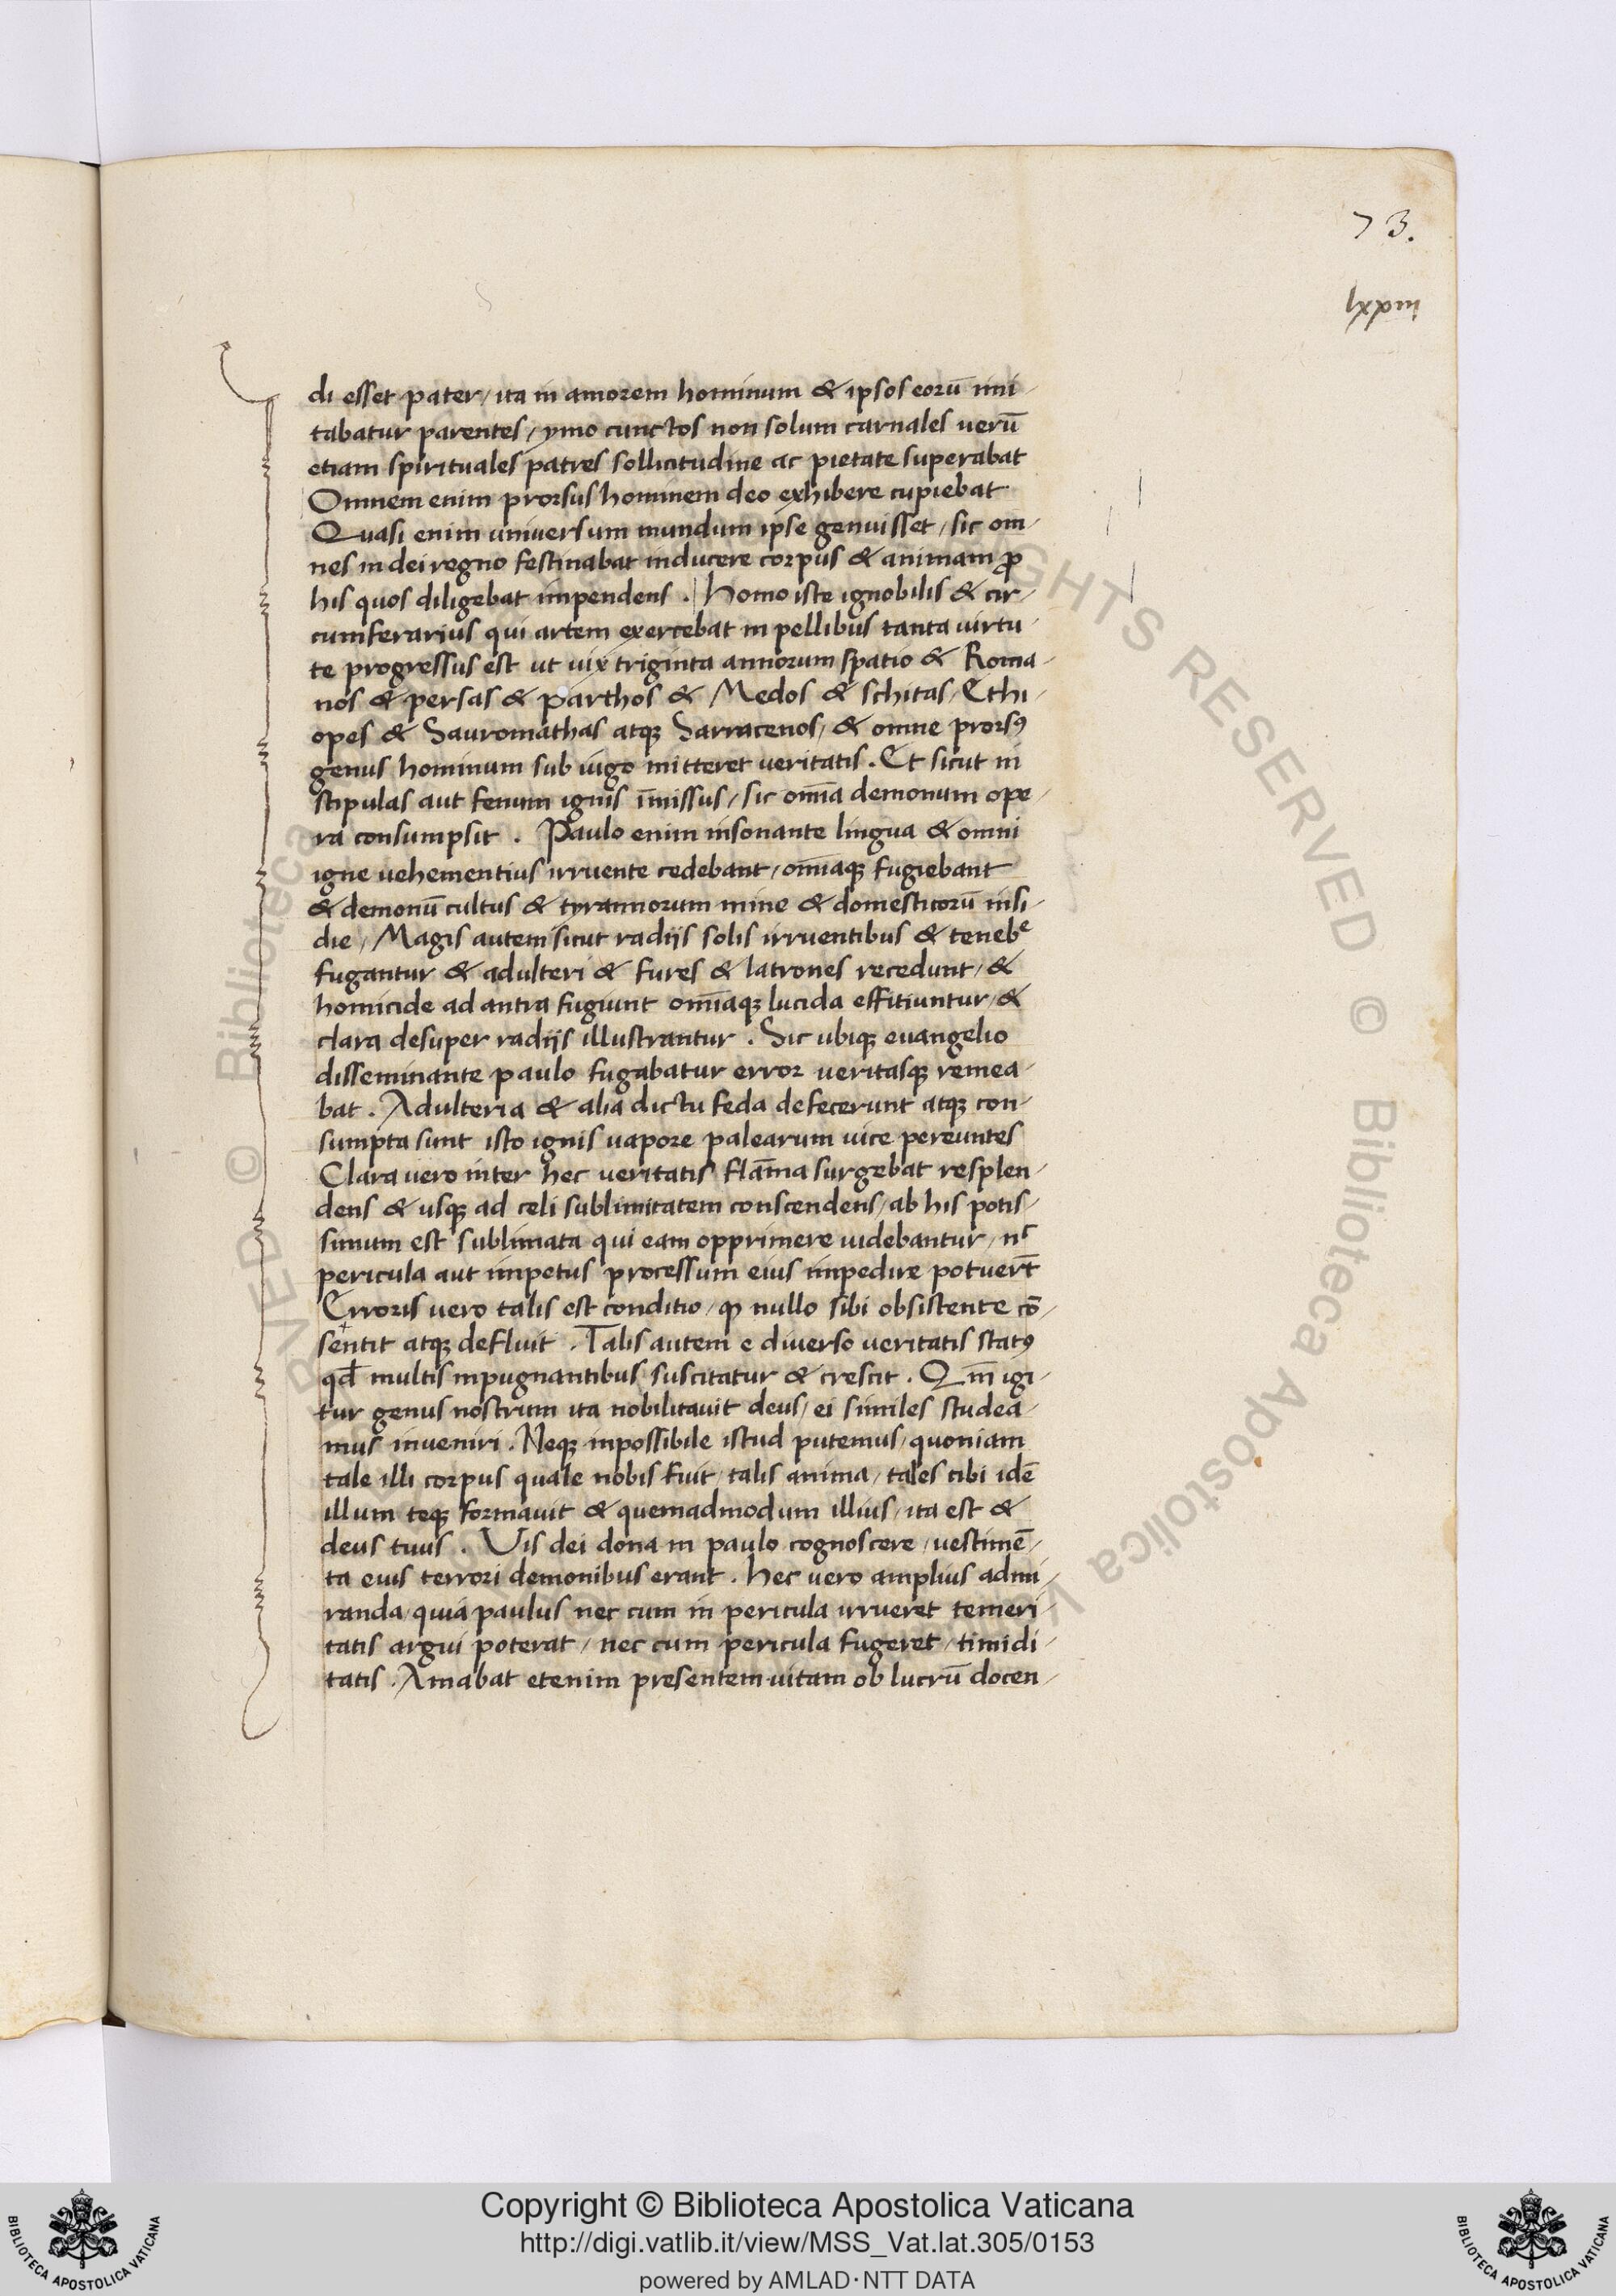 73.
lxxiii
di esset pater / ita in amorem hominum & ipsos eorū imi-
tabatur parentes / ymo cunctos non solum carnales verū
etiam spirituales patres sollicitudine ac pietate superabat
Omnem enim prorsus hominem deo exhibere cupiebat
Quasi enim universum mundum ipse genuisset / sic om-
nes in dei regno festinabat inducere corpus & animam ꝓ
his quos diligebat impendens . Homo iste ignobilis & cir-
cumferarius qui artem exercebat in pellibus tanta virtu-
te progressus est ut vix triginta annorum spatio & Roma-
nos & persas & parthos & Medos & schitas / Ethi-
opes & Sauromathas atqꝫ Sarracenos / & omne prorsꝰ
genus hominum sub iugo mitteret veritatis . Et sicut in
stipulas aut fenum ignis īmissus / sic om̄ia demonum ope-
ra consumpsit . Paulo enim insonante lingua & omni
igne vehementius irruente cedebant / om̄iaqꝫ fugiebant
& demonū cultus & tyrannorum mine & domesticorū insi-
die / Magis autem sicut radijs solis irruentibus & tenebᵉ
fugantur & adulteri & fures & latrones recedunt / &
homicide ad antra fugiunt om̄iaqꝫ lucida effitiuntur / &
clara desuper radijs illustrantur . Sic ubiqꝫ euangelio
disseminante paulo fugabatur error veritasqꝫ remea-
bat . Adulteria & alia dictu feda defecerunt atqꝫ con-
sumpta sunt isto ignis vapore palearum vice pereuntes
Clara vero inter hec veritatis flām̄a surgebat resplen-
dens & usqꝫ ad celi sublimitatem conscendens / ab his potis-
simum est sublimata qui eam opprimere videbantur / nᶜ
pericula aut impetus processum eius impedire potuer̄t
Erroris vero talis est conditio / ꝙ nullo sibi obsistente cō-
sentit atqꝫ defluit . Talis autem e diverso veritatis statꝰ
qđ multis inpugnantibus suscitatur & crescit . Qm̄ igi-
tur genus nostrum ita nobilitavit deus / ei similes studea-
mus inveniri . Neqꝫ inpossibile istud putemus / quoniam
tale illi corpus quale nobis fuit / talis anima / tales cibi idē
illum teqꝫ formavit & quemadmodum illius / ita est &
deus tuus . Vis dei dona in paulo cognoscere / vestimē-
ta eius terrori demonibus erant . hec vero amplius admi-
randa / quia paulus nec cum in pericula irrueret temeri-
tatis argui poterat / nec cum pericula fugeret / timidi-
tatis . Amabat etenim presentem vitam ob lucrū docen-
RVED © Biblioteca
GHTS RESERVED © Biblioteca Apostolica V
Copyright © Biblioteca Apostolica Vaticana
http://digi.vatlib.it/view/MSS_Vat.lat.305/0153
powered by AMLAD·NTT DATA
BIBLIOTECA APOSTOLICA VATICANA
BIBLIOTECA APOSTOLICA VATICANA